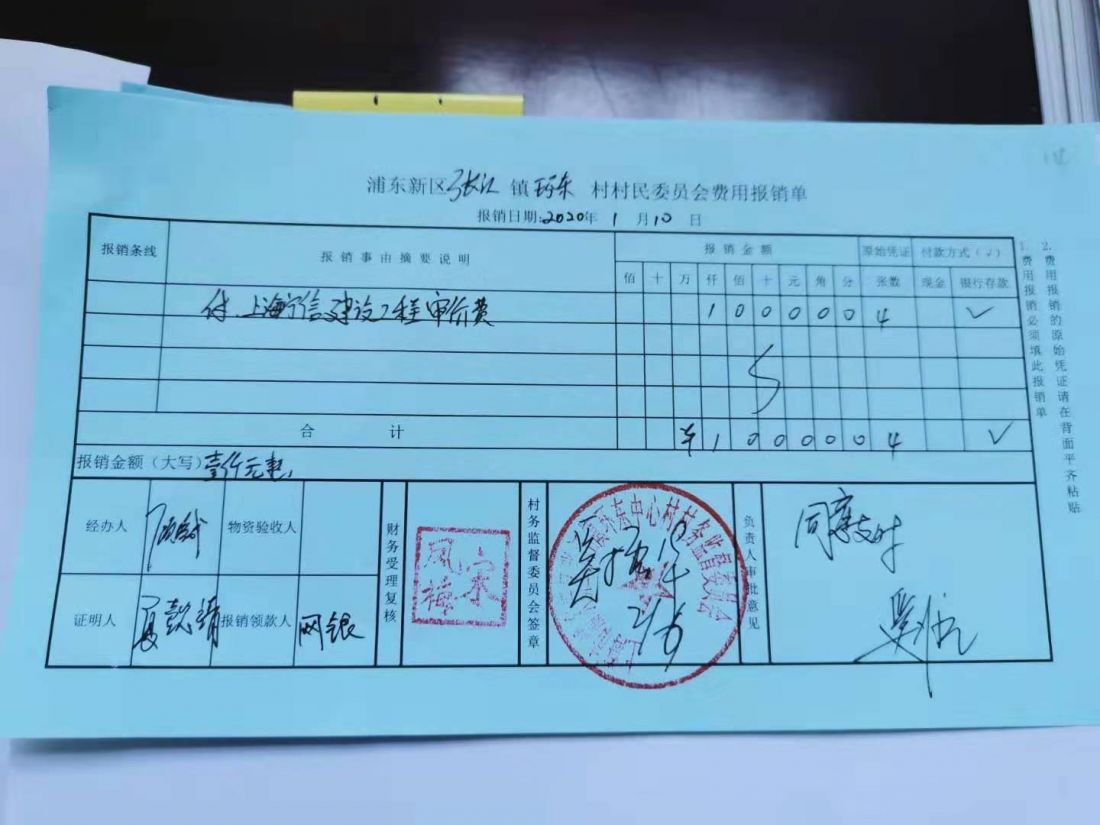 浦东新区张江镇环东村村民委员会费用报销单
报销日期:2020年 1 月 10 日
报销条线 报销事由摘要说明 报销金额 原始凭证 付款方式(√)
佰 十 万 仟 佰 十 元 角 分 张数 现金 银行存款
付.上海宁信建设工程审价费 1 0 0 0 0 0 4 √
合计 ¥ 1 0 0 0 0 0 4 √
报销金额(大写)壹仟元整
经办人 物资验收人
证明人 夏懿靖 报销领款人 网银
财务受理复核
宋
凤梅
村务监督委员会签章
环东中心村村务监督委员会
负责人审批意见
同意支付
1.费用报销必须填此报销单
2.费用报销的原始凭证请在背面平齐粘贴